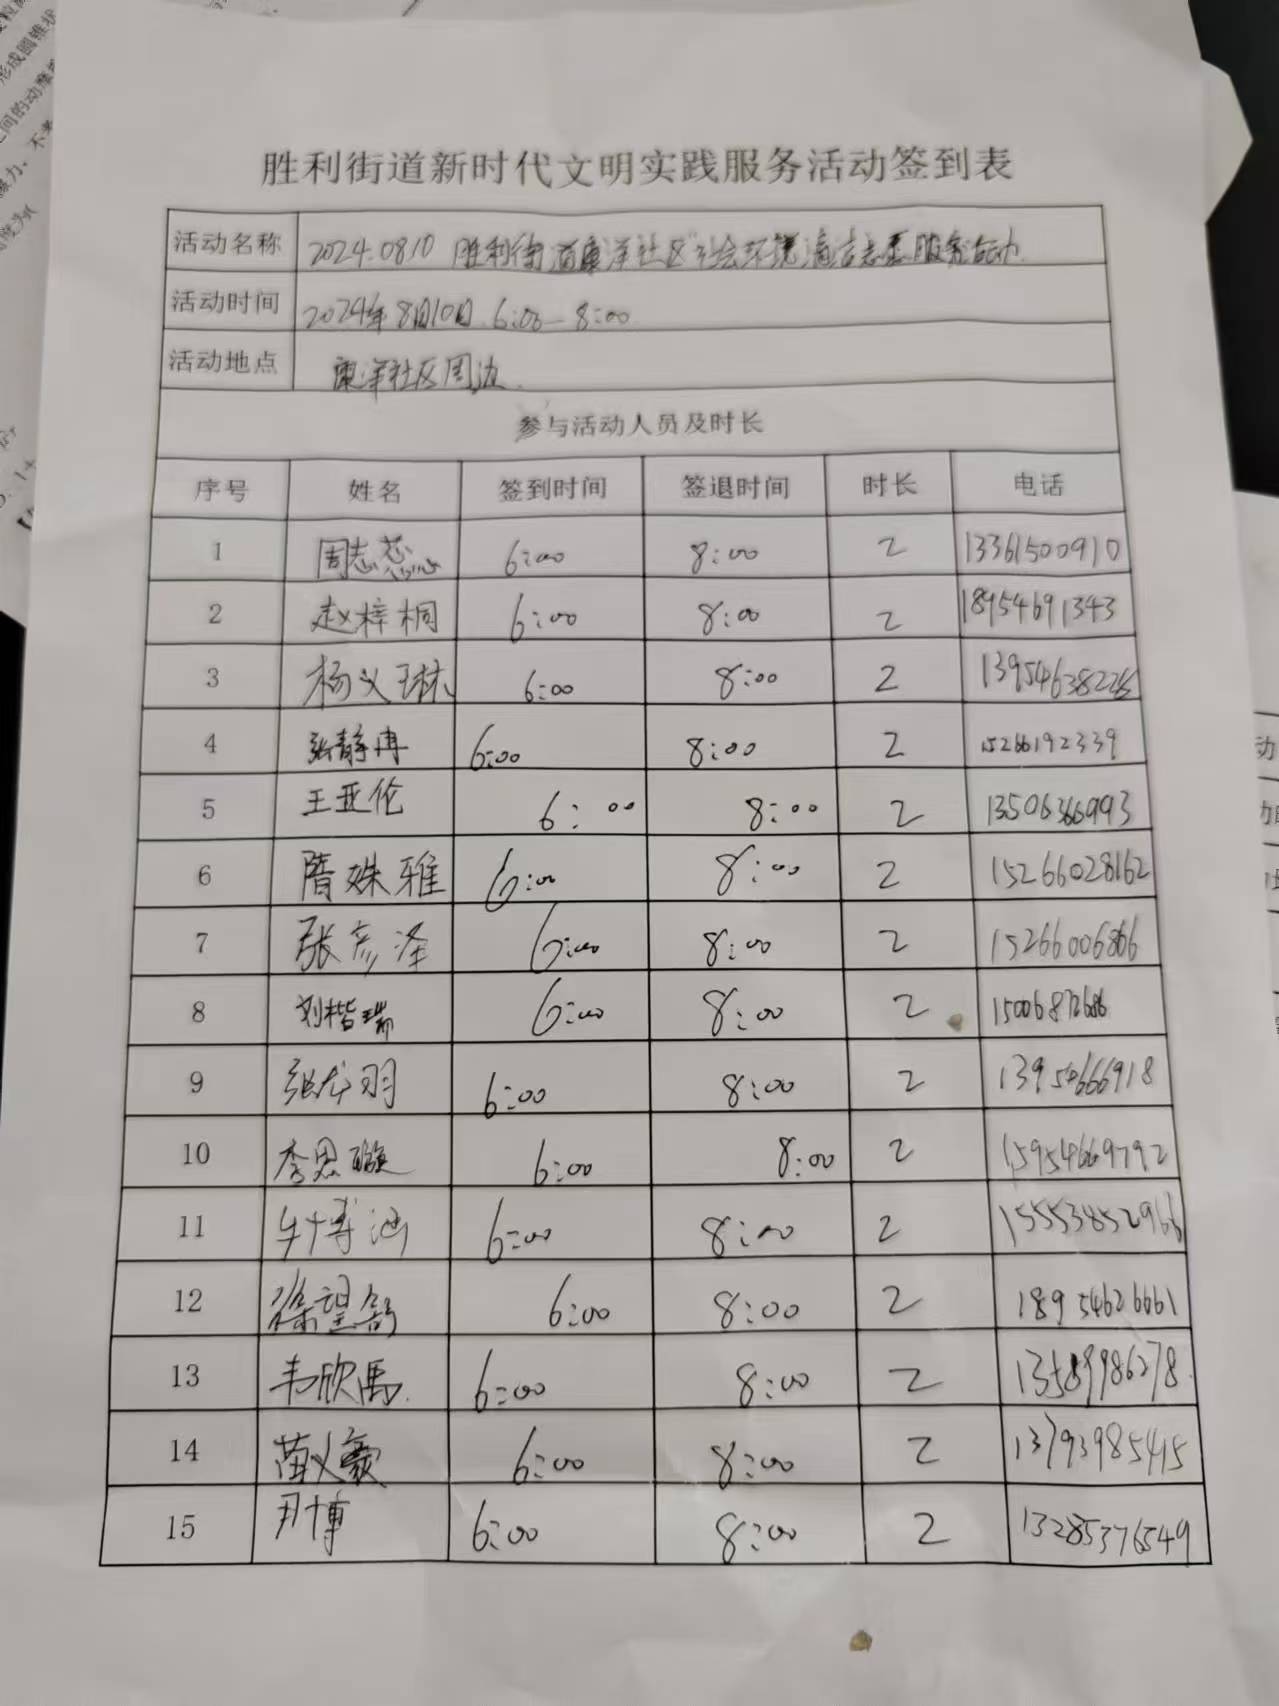 胜利街道新时代文明实践服务活动签到表
活动名称 2024.0810 胜利街道康洋社区"社会环境清洁志愿服务活动
活动时间 2024年8月10日 6:00-8:00
活动地点 康洋社区周边
参与活动人员及时长
序号 姓名 签到时间 签退时间 时长 电话
1 周志蕊 6:00 8:00 2 13361500910
2 赵梓桐 6:00 8:00 2 18954691343
3 杨义琳 6:00 8:00 2
4 张静冉 6:00 8:00 2 15266192339
5 王亚伦 6:00 8:00 2 13506366993
6 隋姝雅 6:00 8:00 2 15266028162
7 张彦泽 6:00 8:00 2 15266006866
8 刘楷瑞 6:00 8:00 2
9 张龙羽 6:00 8:00 2 13954666918
10 李思璇 6:00 8:00 2 15954669792
11 牟博涵 6:00 8:00 2
12 徐望舒 6:00 8:00 2 18954626661
13 韦欣禹 6:00 8:00 2 13589986278
14 苗义豪 6:00 8:00 2 13793985415
15 尹博 6:00 8:00 2 13285376549